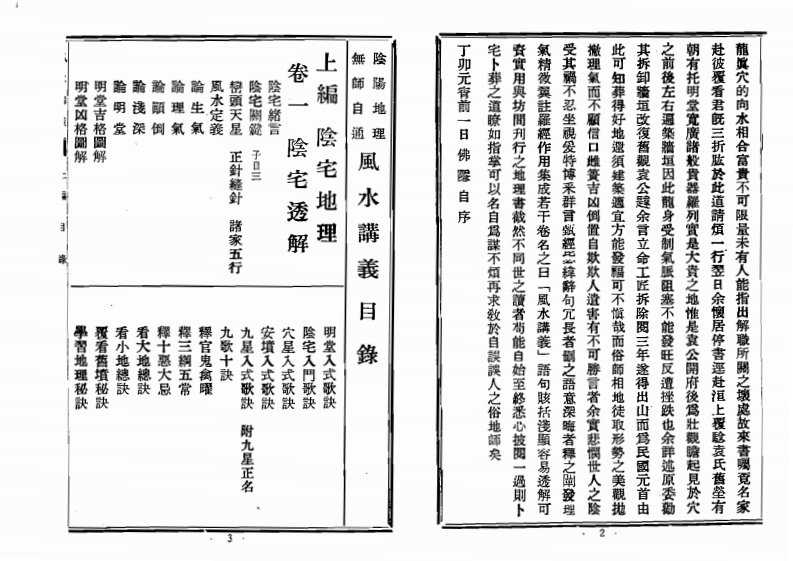 龍眞穴的向水相合富貴不可限量未有人能指出解職所關之壞處故來書囑覓名家
赴彼覆看君旣三折肱於此道請煩一行翌日余懷居停書逕赴洹上覆騐袁氏舊塋有
朝有托明堂寬廣諸般貴器羅列實是大貴之地惟是袁公開府後爲壯觀瞻起見於穴
之前後左右遍築牆垣因此龍身受制氣脈阻塞不能發旺反遭挫跌也余詳述原委勸
其拆卸牆垣改復舊觀袁公韙余言立命工匠拆除閱三年遂得出山而爲民國元首由
此可知葬得好地還須建築適宜方能發福可不愼哉而俗師相地徒取形勢之美觀拋
撇理氣而不顧信口雌簧吉凶倒置自欺欺人遺害有不可勝言者余實悲憫世人之陰
受其禍不忍坐視爰特博釆群言甄經緯辭句冗長者删之語意深晦者釋之闡發理
氣精微巽註羅經作用集成若干卷名之曰「風水講義」語句賅括淺顯容易透解可
賣實用與坊間刊行之地理書截然不同世之讀者苟能自始至終悉心披閱一過則卜
宅卜葬之道瞭如指掌可以名自爲謀不煩再求敎於自誤誤人之俗地師矣
丁卯元宵前一日佛隱自序
2
陰陽地理
無師自通
風水講義目錄
上編 陰宅地理
卷一 陰宅透解
陰宅緒言
陰宅關鍵 子目三
巒頭天星 正針縫針 諸家五行
風水定義
論生氣
論理氣
論顚倒
論淺深
論明堂
明堂吉格圖解
明堂凶格圖解
明堂入式歌訣
陰宅入門歌訣
穴星入式歌訣
安墳入式歌訣
九星入式歌訣 附九星正名
九歌十訣
釋官鬼禽曜
釋三綱五常
釋十惡大忌
看大地總訣
看小地總訣
覆看舊墳秘訣
學習地理秘訣
3